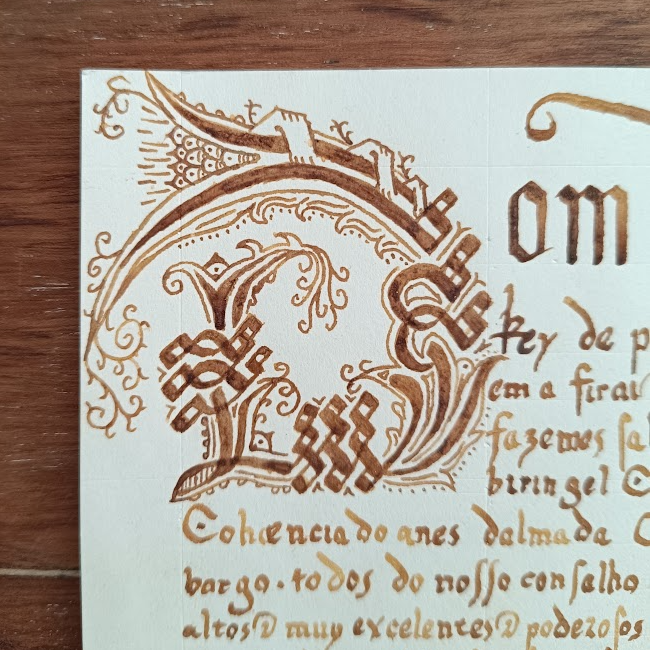 Dom
Rey de p
em a firau
fazemos sa
biringel
Cohœncia do anes dalmada
bargo. todos do nosso consalho
altos muy excelentes poderosos